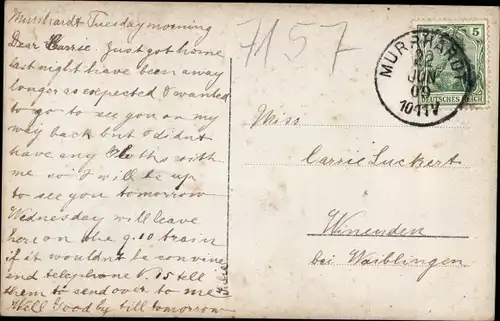 Murrhardt Tuesday morning
Dear Carrie. Just got home
last night have been away
longer as expected I wanted
to go to see you on my
way back but I didnt
have any Cloths with
me so I will be up
to see you tomorrow
Wednesday will leave
here on the 9.10 train
if it wouldn't be convine
and telephone 15 tell
them to send over to me
Well Good by till tomorrow
7157
MURRHARDT
22
JUN
09
10-11V
5
DEUTSCHES REICH
Miss
Carrie Luckert
Winenden
bei Waiblingen